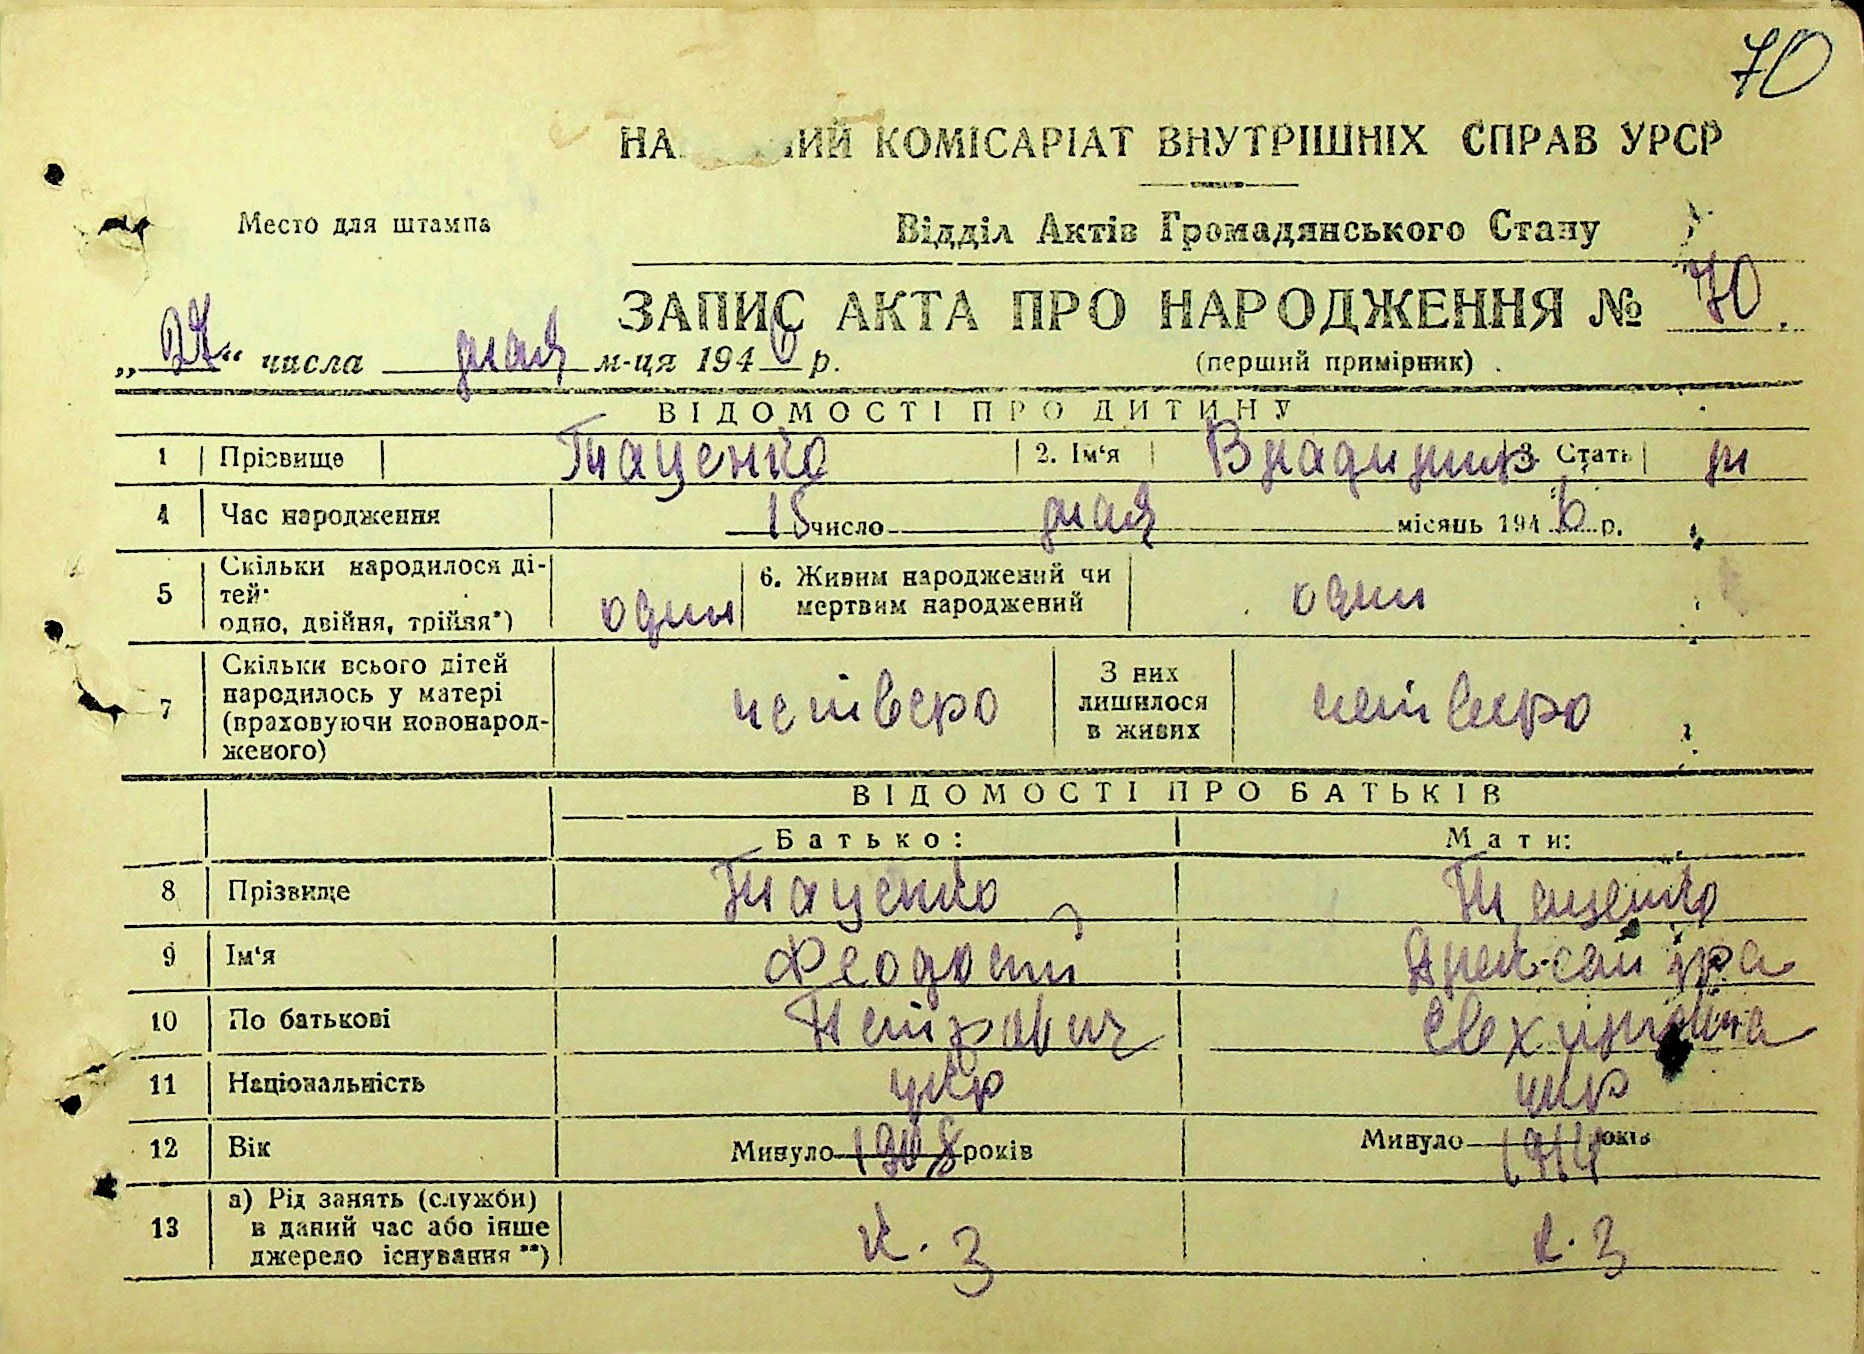 70
НА ИЙ КОМІСАРІАТ ВНУТРІШНІХ СПРАВ УРСР
Место для штампа
Відділ Актів Громадянського Стану
ЗАПИС АКТА ПРО НАРОДЖЕННЯ № 70.
„ “ числа мая м-ця 1946 р.
(перший примірник)
ВІДОМОСТІ ПРО ДИТИНУ
1 Прізвище Таценко 2. Ім‘я Владимир 3. Стать м
4 Час народження 15 число мая місяць 1946 р.
5 Скільки народилося ді-
тей
одно, двійня, трійня*) один
6. Живим народжений чи
мертвим народжений один
7 Скільки всього дітей
народилось у матері
(враховуючи новонарод-
женого) четверо
З них
лишилося
в живих четверо
ВІДОМОСТІ ПРО БАТЬКІВ
Батько: Мати:
8 Прізвище Таценко Таценко
9 Ім‘я Феодосий Александра
10 По батькові Петрович
11 Національність укр укр
12 Вік Минуло 1908 років Минуло 1914 років
13 а) Рід занять (служби)
в даний час або інше
джерело існування **) к. з к. з